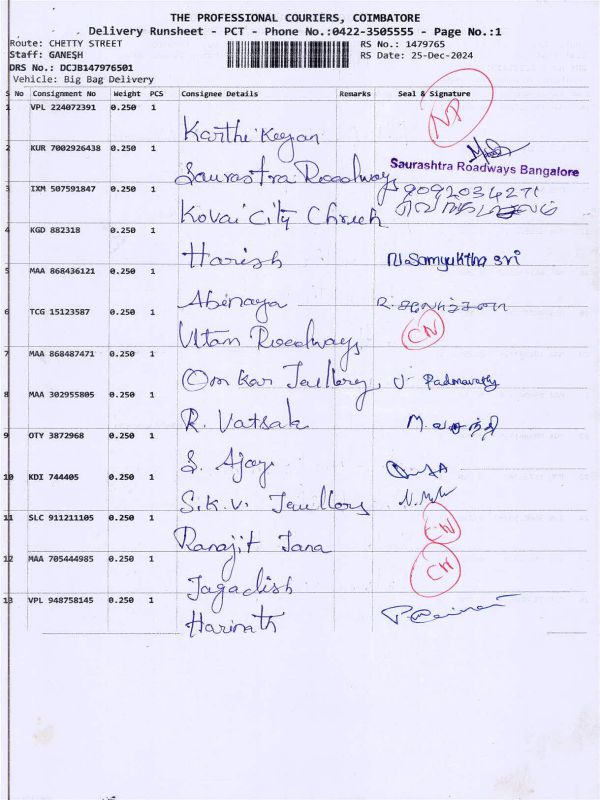 THE PROFESSIONAL COURIERS, COIMBATORE
Delivery Runsheet - PCT - Phone No.:0422-3505555 - Page No.:1
Route: CHETTY STREET RS No.: 1479765
Staff: GANESH RS Date: 25-Dec-2024
DRS No.: DCJB147976501
Vehicle: Big Bag Delivery
S No Consignment No Weight PCS Consignee Details Remarks Seal & Signature
1 VPL 224072391 0.250 1 Karthi Keyan NP
2 KUR 7002926438 0.250 1 Saurastra Roadways Saurashtra Roadways Bangalore
3 IXM 507591847 0.250 1 Kovai City Chruch 9092034271
4 KGD 882318 0.250 1 Harish N.Samyuktha sri
5 MAA 868436121 0.250 1 Abinaya
6 TCG 15123587 0.250 1 Uttam Roadways CN
7 MAA 868487471 0.250 1 Om kar Jaullery, U- Padmavathy
8 MAA 302955805 0.250 1 R. Vatsak M. வசந்தி
9 OTY 3872968 0.250 1 S. Ajay
10 KDI 744405 0.250 1 S.K.V. Jaullery
11 SLC 911211105 0.250 1 Ranajit Jana CN
12 MAA 705444985 0.250 1 Jagadish CN
13 VPL 948758145 0.250 1 Harinath